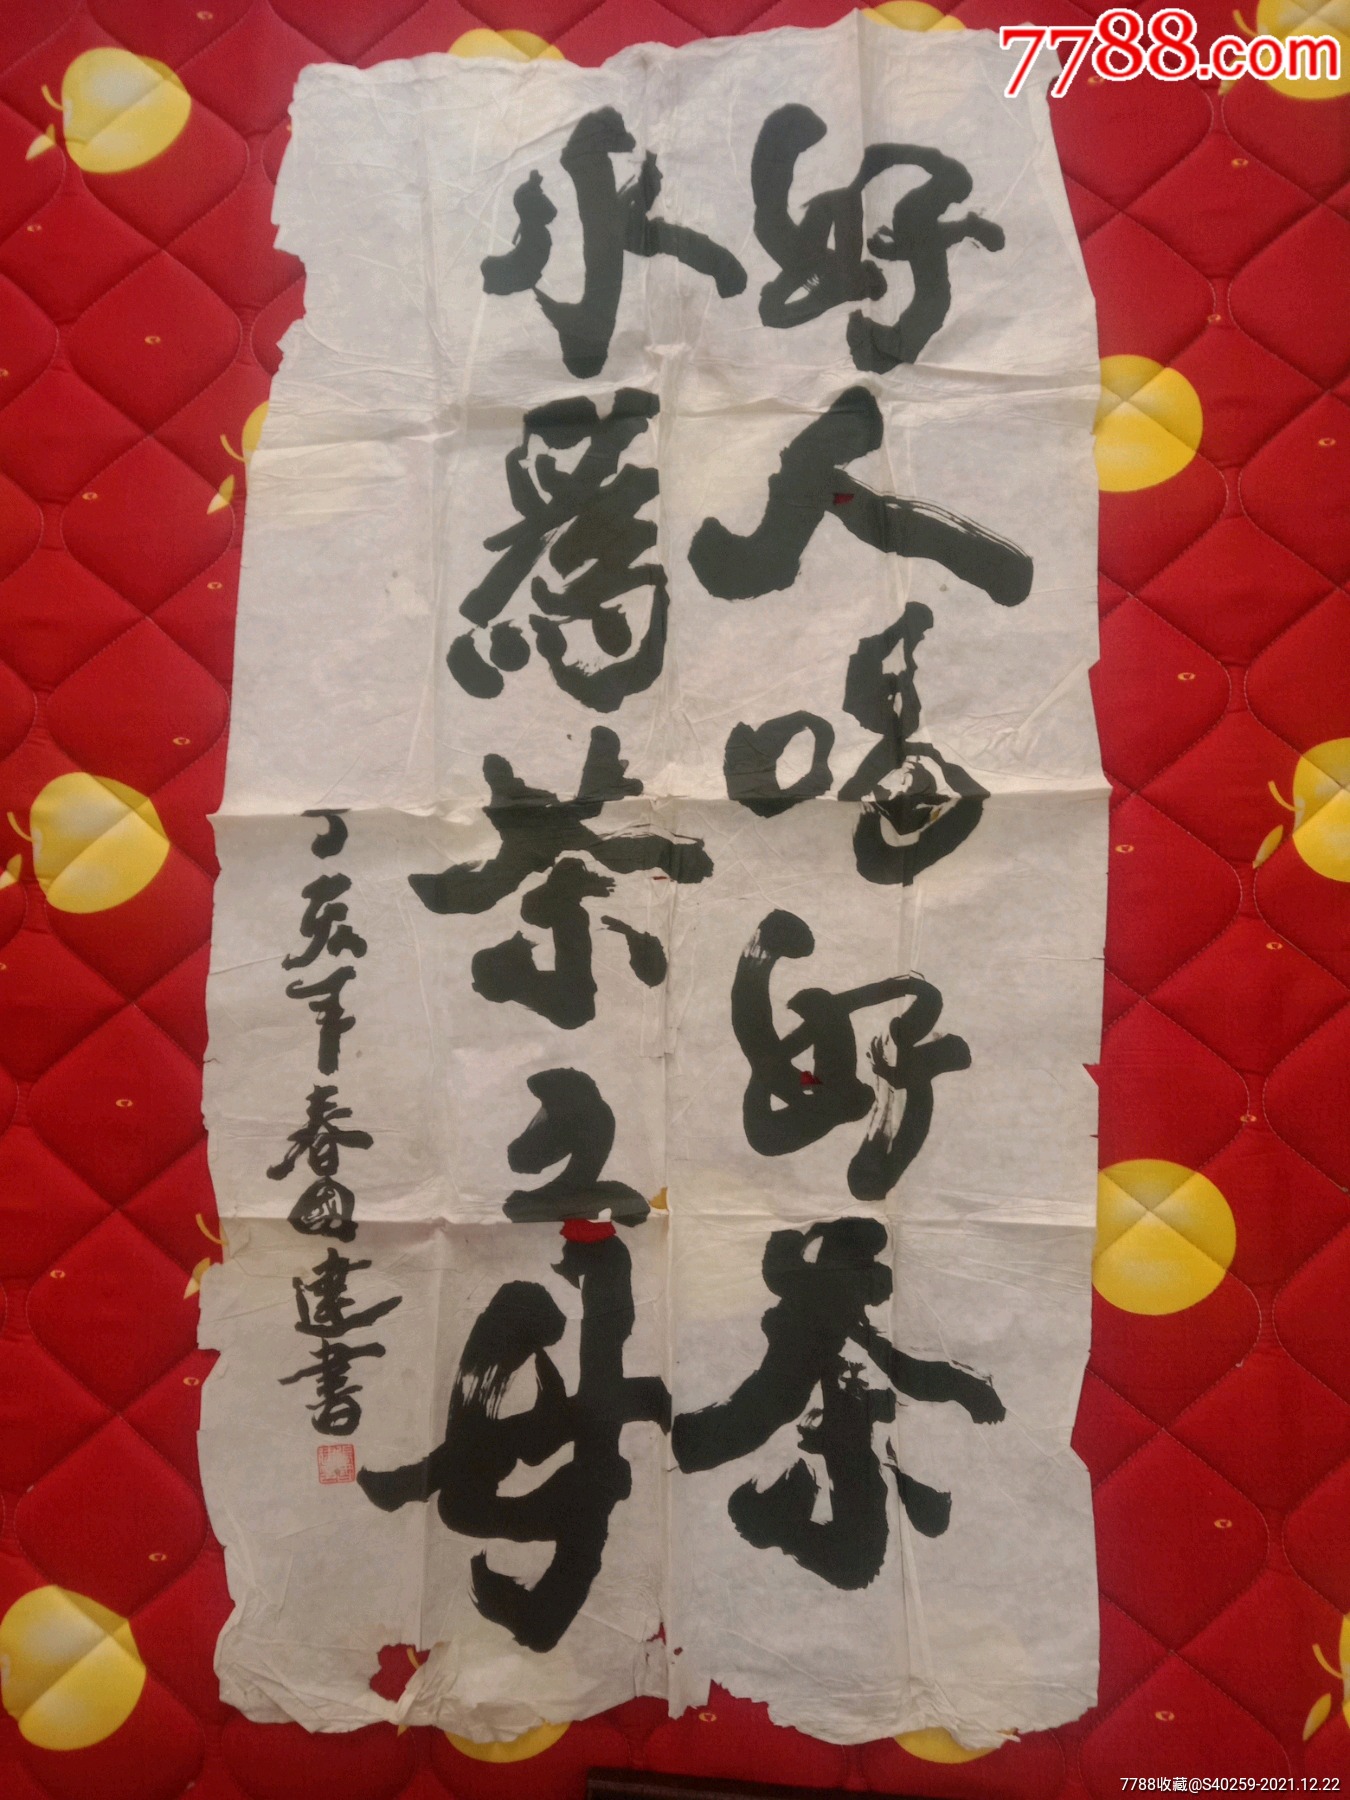 7788.com
好人喝好茶
水為茶之母
丁亥年春國建書
7788收藏@S40259-2021.12.22